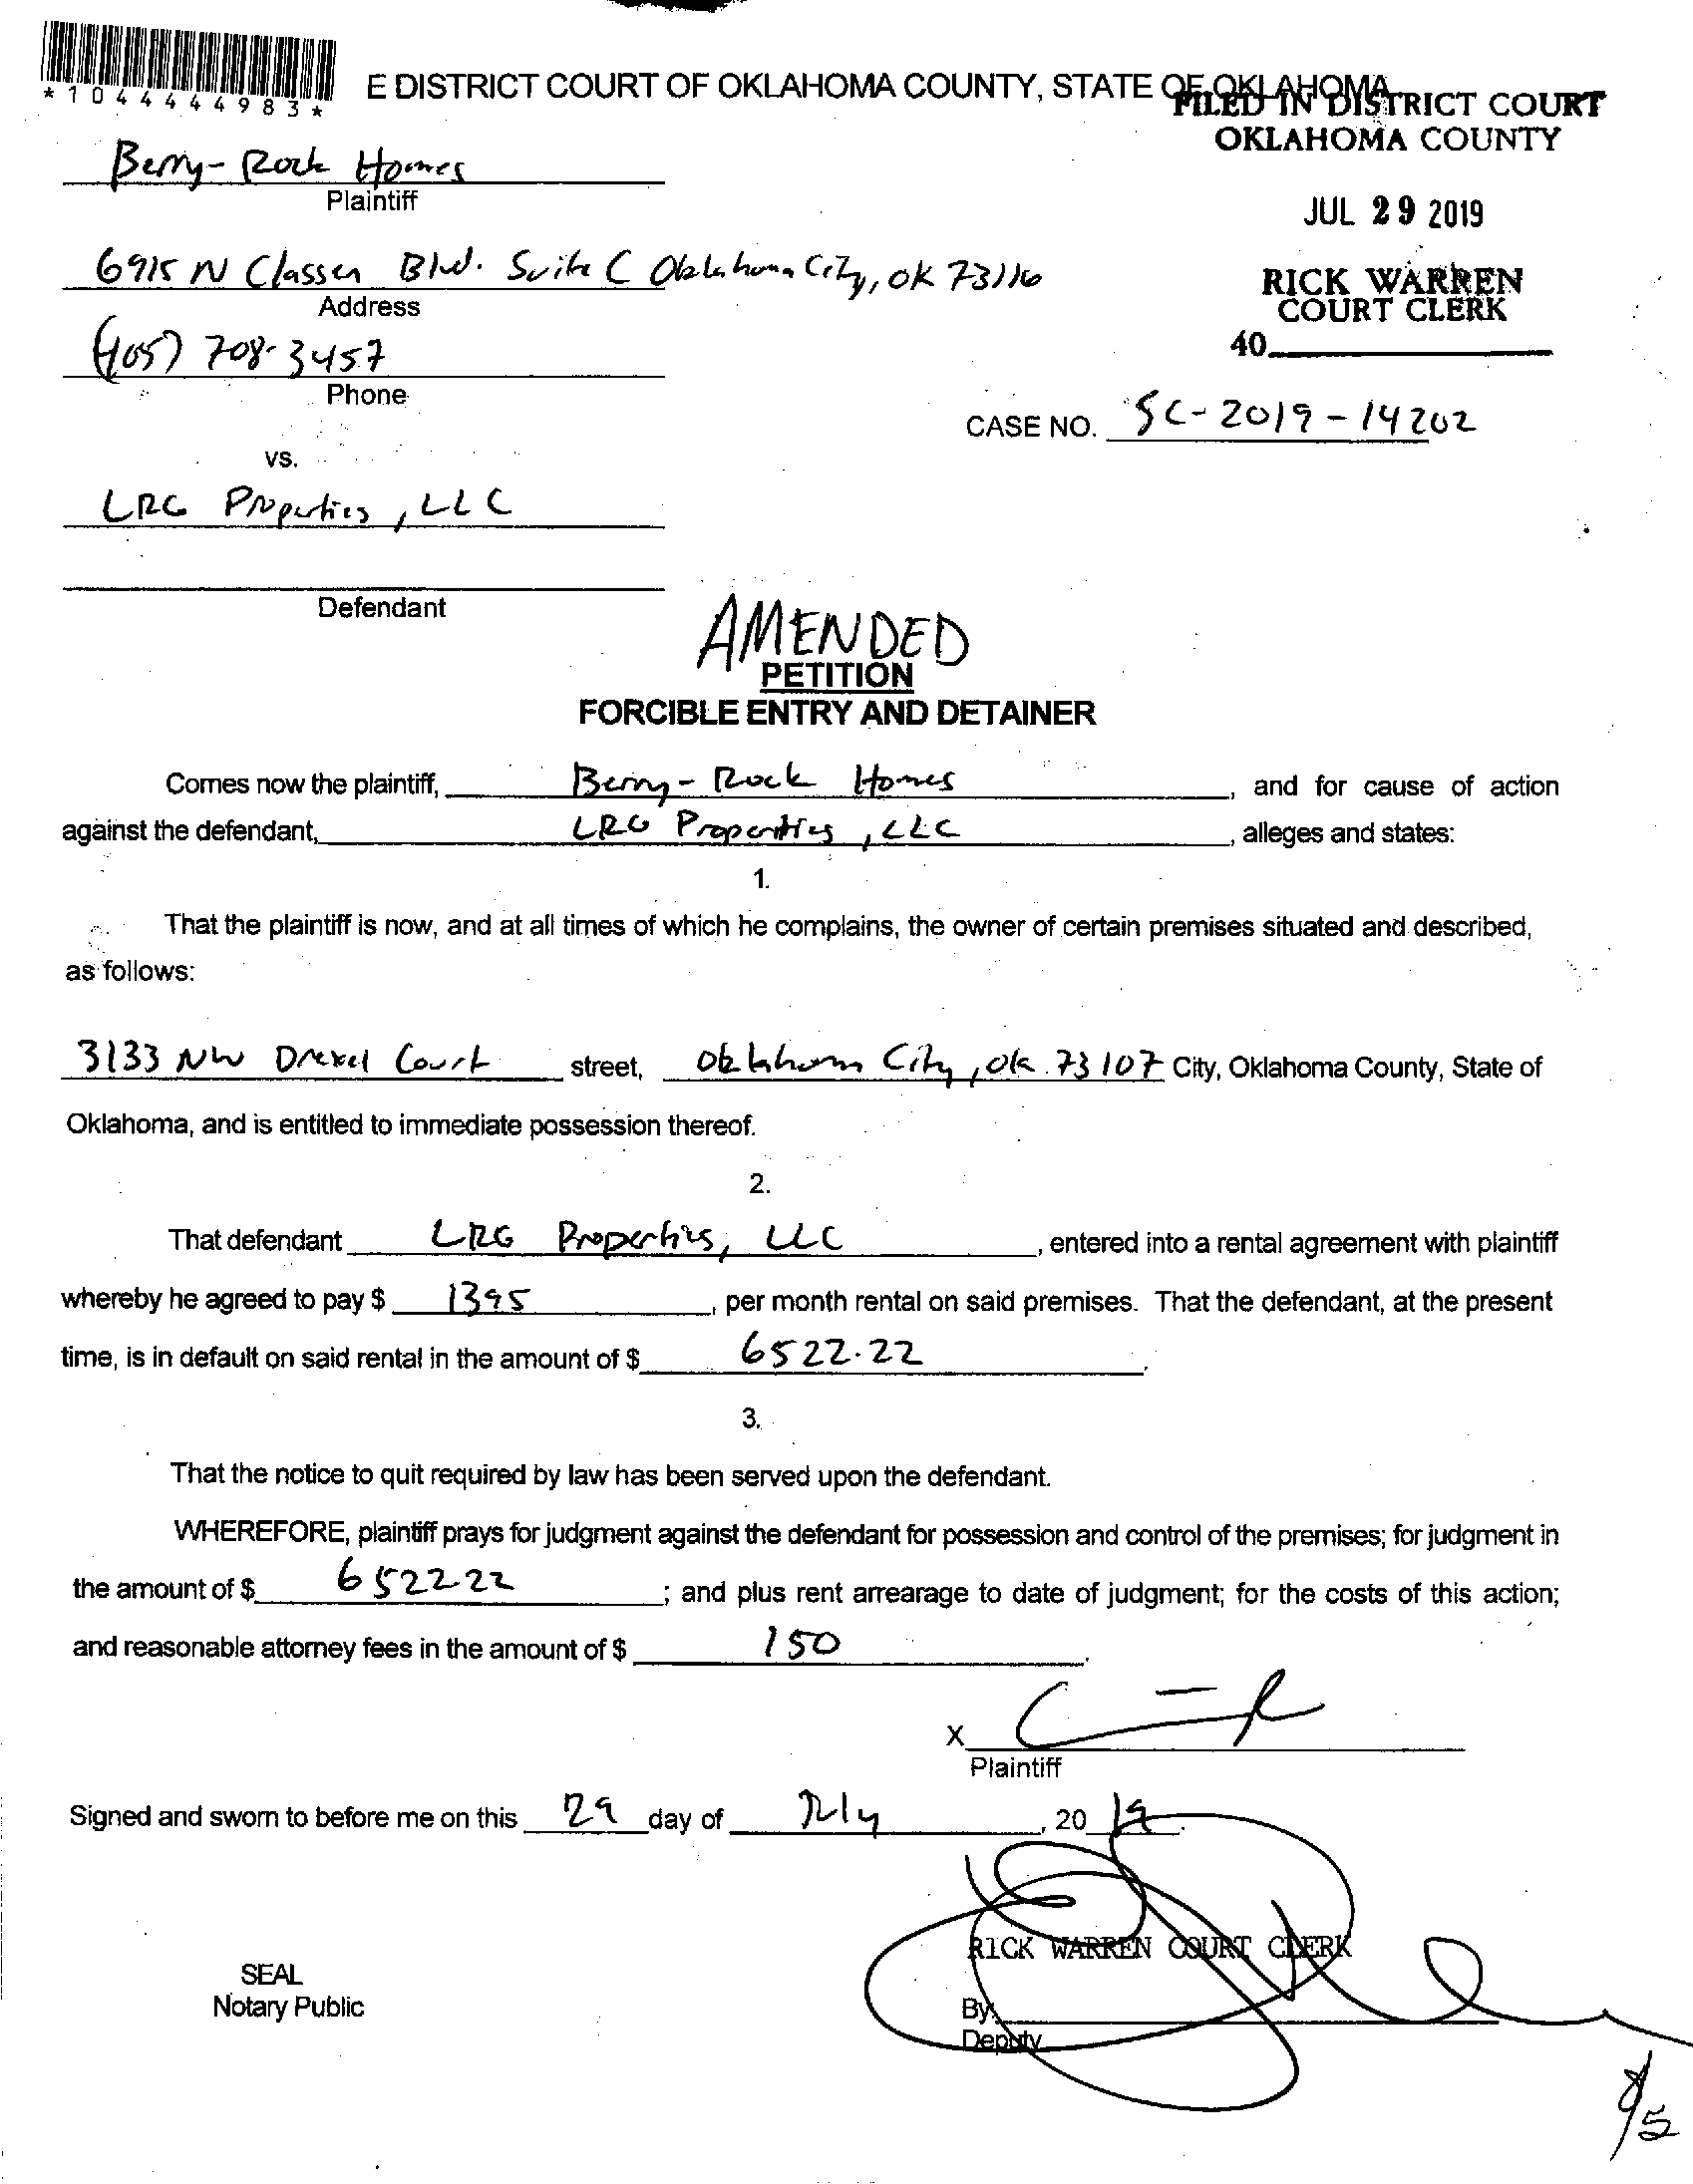 *1044444983*
E DISTRICT COURT OF OKLAHOMA COUNTY, STATE OF OKLAHOMA
FILED IN DISTRICT COURT
OKLAHOMA COUNTY
Berry-Rock Homes
Plaintiff
JUL 29 2019
6915 N Classen Blvd. Suite C Oklahoma City, OK 73116
Address
RICK WARREN
COURT CLERK
(405) 708-3457
Phone
40
CASE NO. SC-2019-14202
vs.
LRG Properties, LLC
Defendant
AMENDED
PETITION
FORCIBLE ENTRY AND DETAINER
Comes now the plaintiff, Berry-Rock Homes, and for cause of action
against the defendant, LRG Properties, LLC, alleges and states:
1.
That the plaintiff is now, and at all times of which he complains, the owner of certain premises situated and described,
as follows:
3133 NW Drexel Court street, Oklahoma City, OK 73107 City, Oklahoma County, State of
Oklahoma, and is entitled to immediate possession thereof.
2.
That defendant LRG Properties, LLC, entered into a rental agreement with plaintiff
whereby he agreed to pay $ 1395, per month rental on said premises. That the defendant, at the present
time, is in default on said rental in the amount of $ 6522.22.
3.
That the notice to quit required by law has been served upon the defendant.
WHEREFORE, plaintiff prays for judgment against the defendant for possession and control of the premises; for judgment in
the amount of $ 6522.22; and plus rent arrearage to date of judgment; for the costs of this action;
and reasonable attorney fees in the amount of $ 150.
X
Plaintiff
Signed and sworn to before me on this 29 day of July, 2019.
RICK WARREN COURT CLERK
SEAL
Notary Public
By:
Deputy
8/5